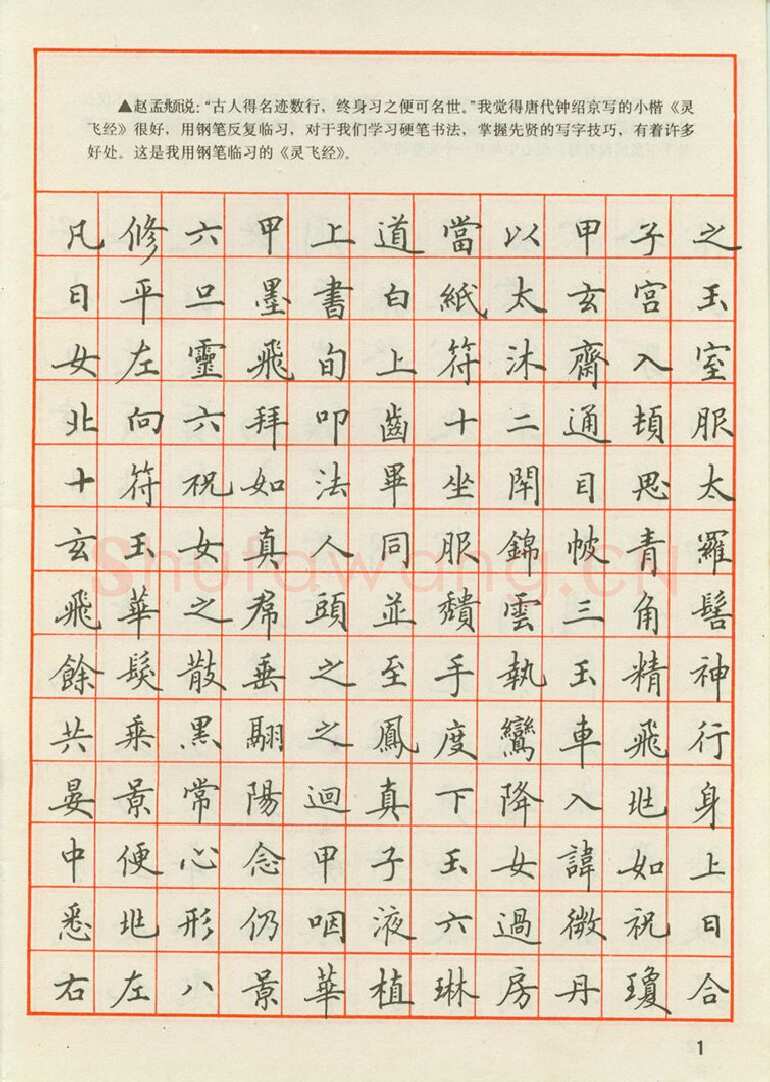 ▲赵孟頫说：“古人得名迹数行，终身习之便可名世。”我觉得唐代钟绍京写的小楷《灵
飞经》很好，用钢笔反复临习，对于我们学习硬笔书法，掌握先贤的写字技巧，有着许多
好处。这是我用钢笔临习的《灵飞经》。
凡修六甲上道當以甲子之
日平旦墨書白紙太玄宮玉
女左靈飛旬上符沐齋入室
北向六拜叩齒十二通頓服
十符祝如法畢坐閉目思太
玄玉女真人同服錦帔青羅
飛華之帬頭並頹雲三角髻
餘髮散垂之至手執玉精神
共乘黑翮之鳳度鸞車飛行
晏景常陽迴真下降入兆身
中便心念甲子玉女諱如上
悉兆形仍咽液六過微祝曰
右左八景華植琳房丹瓊合
shufawang.cn
1